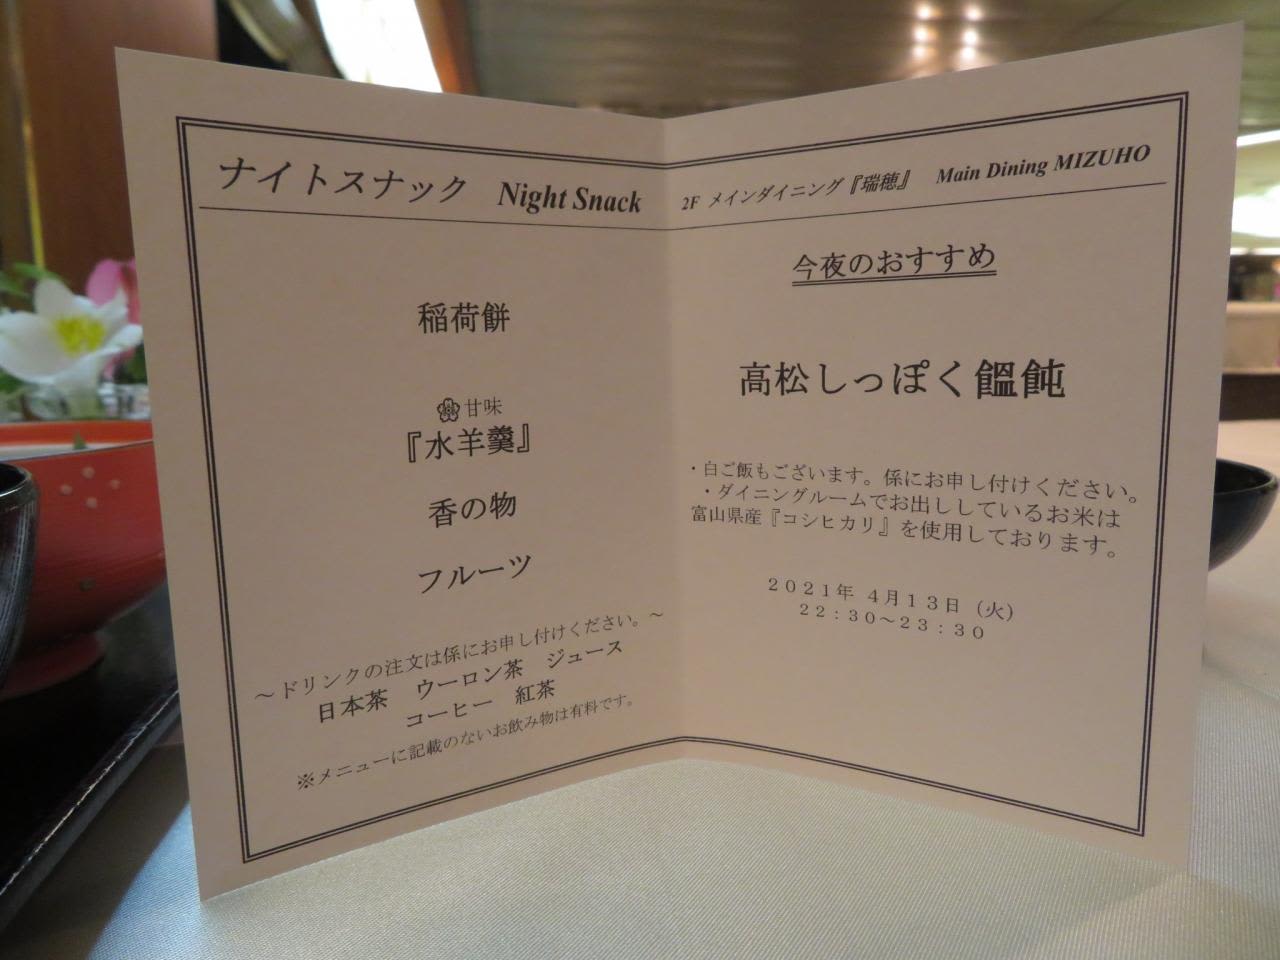 ナイトスナック Night Snack
稲荷餅
甘味
『水羊羹』
香の物
フルーツ
～ドリンクの注文は係にお申し付けください。～
日本茶 ウーロン茶 ジュース
コーヒー 紅茶
※メニューに記載のないお飲み物は有料です。
2F メインダイニング『瑞穂』 Main Dining MIZUHO
今夜のおすすめ
高松しっぽく饂飩
・白ご飯もございます。係にお申し付けください。
・ダイニングルームでお出ししているお米は
富山県産『コシヒカリ』を使用しております。
２０２１年 ４月１３日（火）
２２：３０～２３：３０